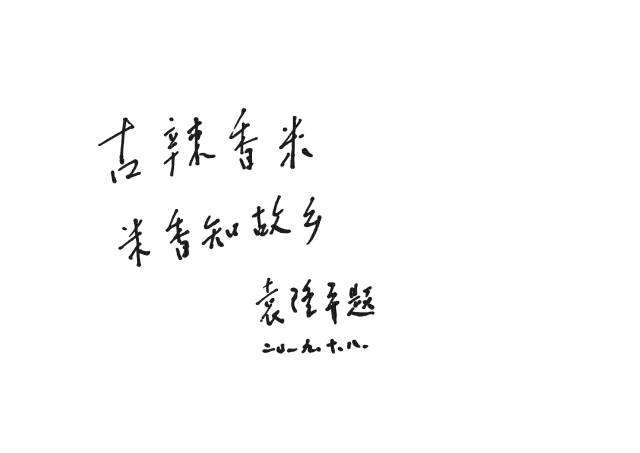 古辣香米
米香知故乡
袁隆平题
二〇一九.十.八.